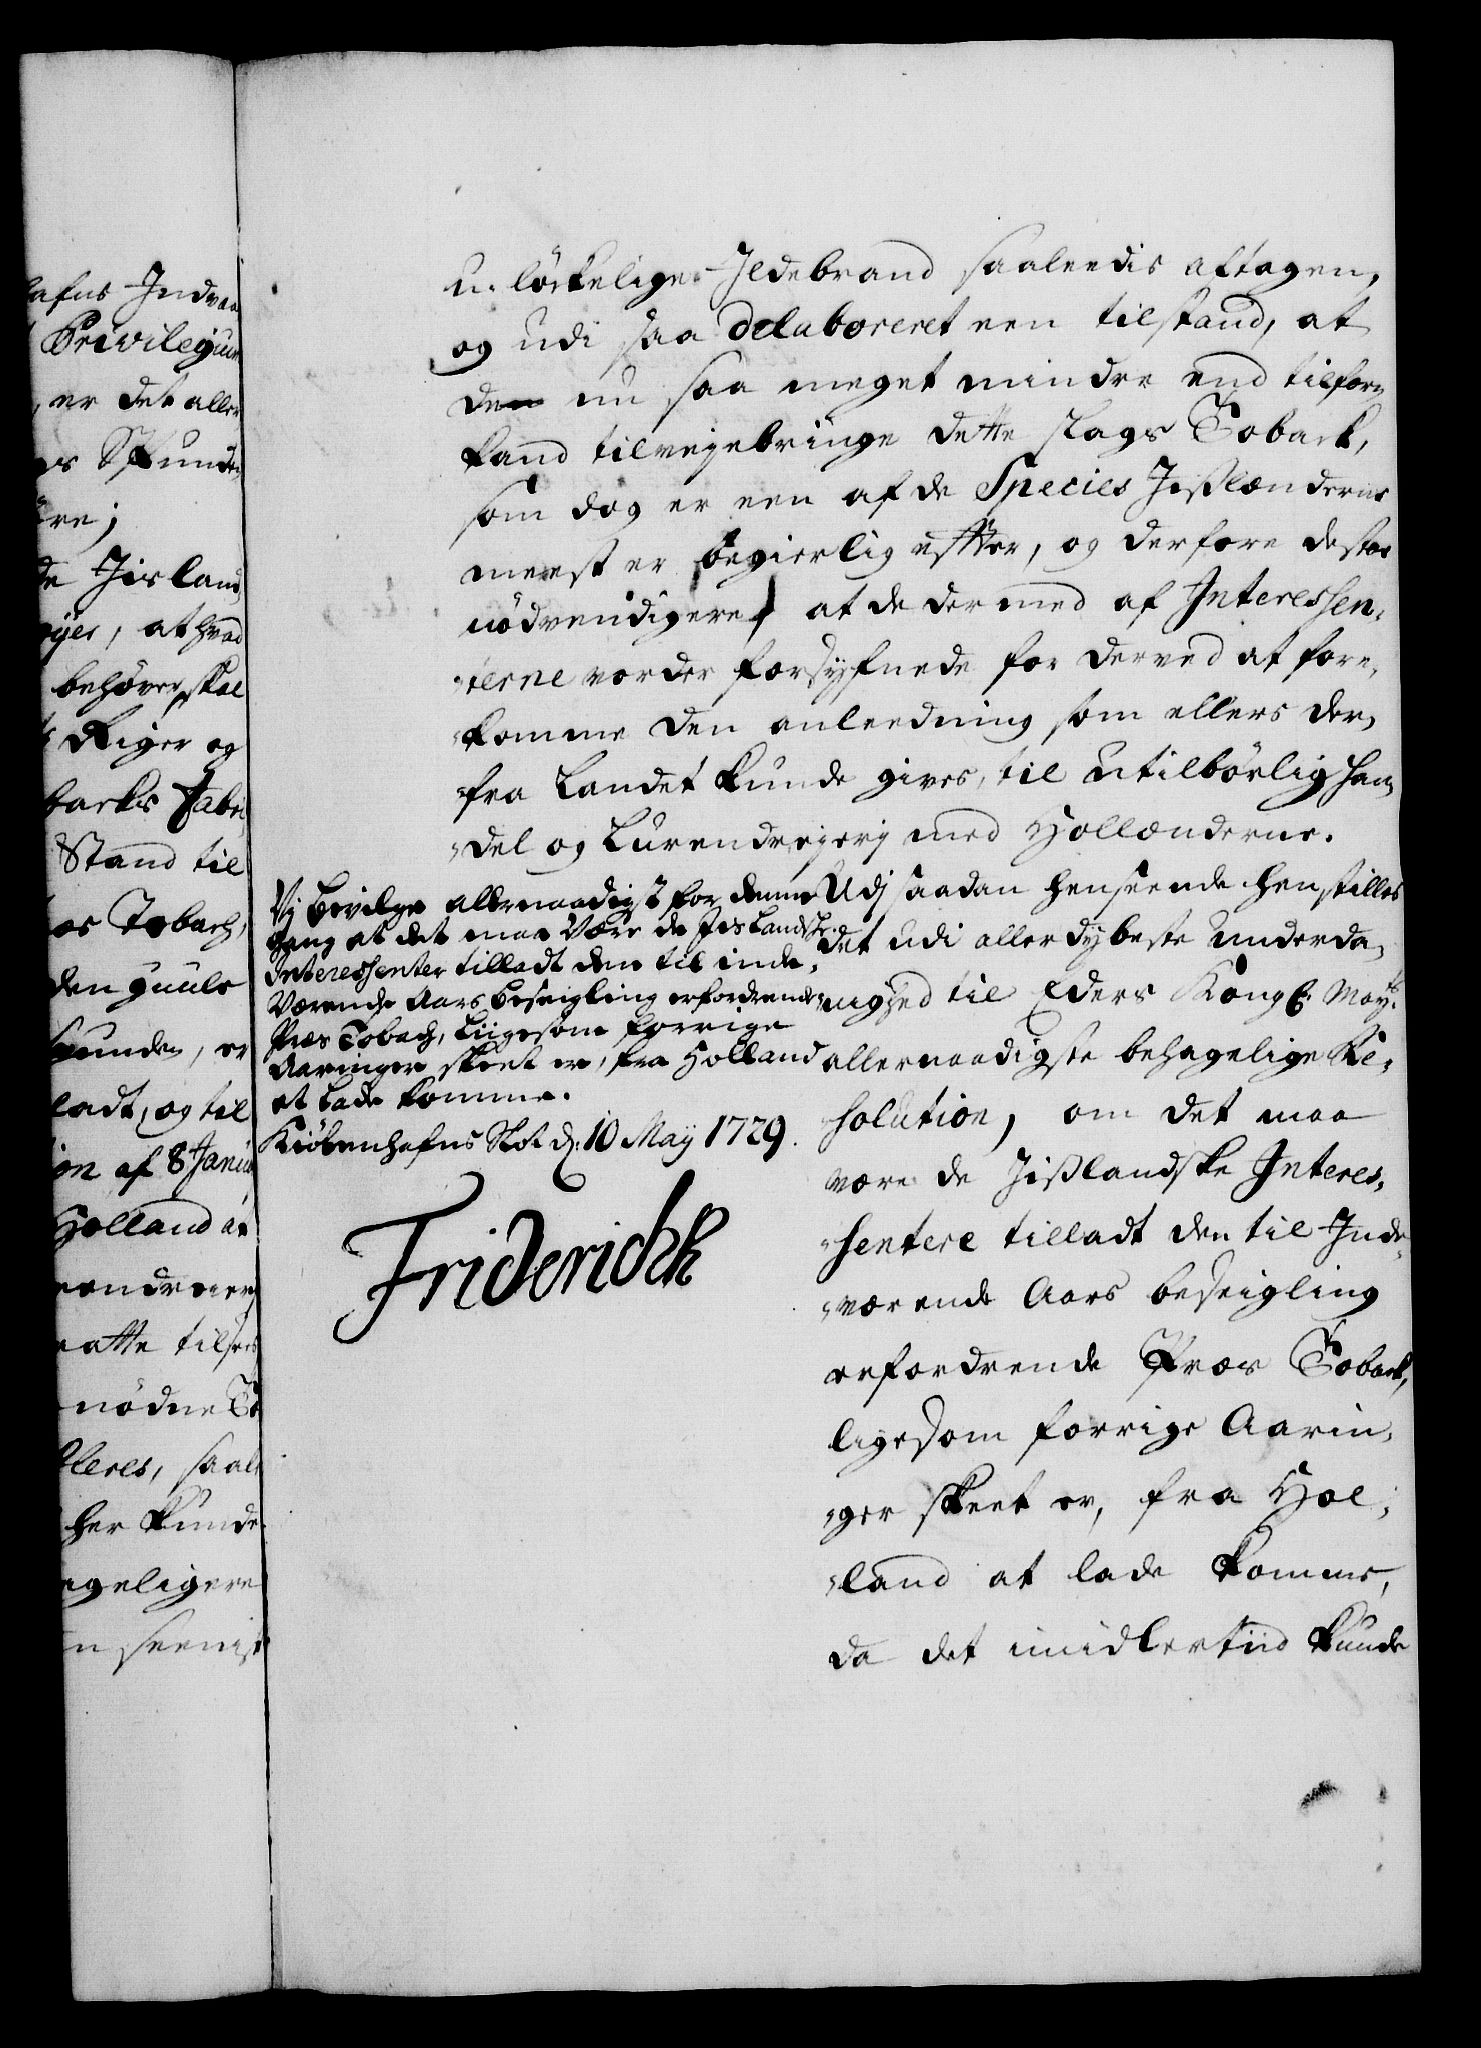 afns Indvaa
Privilegium
, er det aller
es Kunde
öre;
de Jisland
öyes, at hvad
behöver, skal
Riger og
backs Fabri
Stand til
os Tobach,
den guule
kunde, er
ladt, og til
ion af 8 Janu
Holland at
matte tilfor
nödne To
lleres, saale
her kunde
ageligere
n seenist
u-löckelige Ildebrand saaleedis aftagen,
og udi saa delaboreret een tilstand, at
den nu saa meget mindre end tilforn
kand tilvejebringe dette slags Toback,
som dog er een af de Species Jisslænderne
meest er begierlig effter, og derfore destoe
nödvendigere, at de dermed af Interessen-
terne vorder forsyfnede for derved at fore-
komme den anleedning som ellers der-
fra Landet kunde gives, til utilbörlig han-
del og Lurendrejerj med Hollænderne.
Udj saadan henseende henstilles
det udi allerdybeste underda-
nighed til Eders Kongl. May.ts
allernaadigste behagelige Re-
solution, om det maa
være de Jisslandske Interes-
sentere tilladt den til Inde-
værende Aars beseigling
erfordrende Præs Toback,
ligesom forrige Aarin-
ger skeet er, fra Hol-
land at lade komme,
da det imidlertiid kunde
Vj bevilge allernaadigst for denne
gang at det maa Være de Jislandske
Interessenter tilladt den til inde-
Værende Aars beseigling erfordrende
Præs Tobach, liigesom forrige
Aaringer skeet er, fra Holland
at lade komme.
Kiöbenhafns Slot d: 10 May 1729.
Friderichk